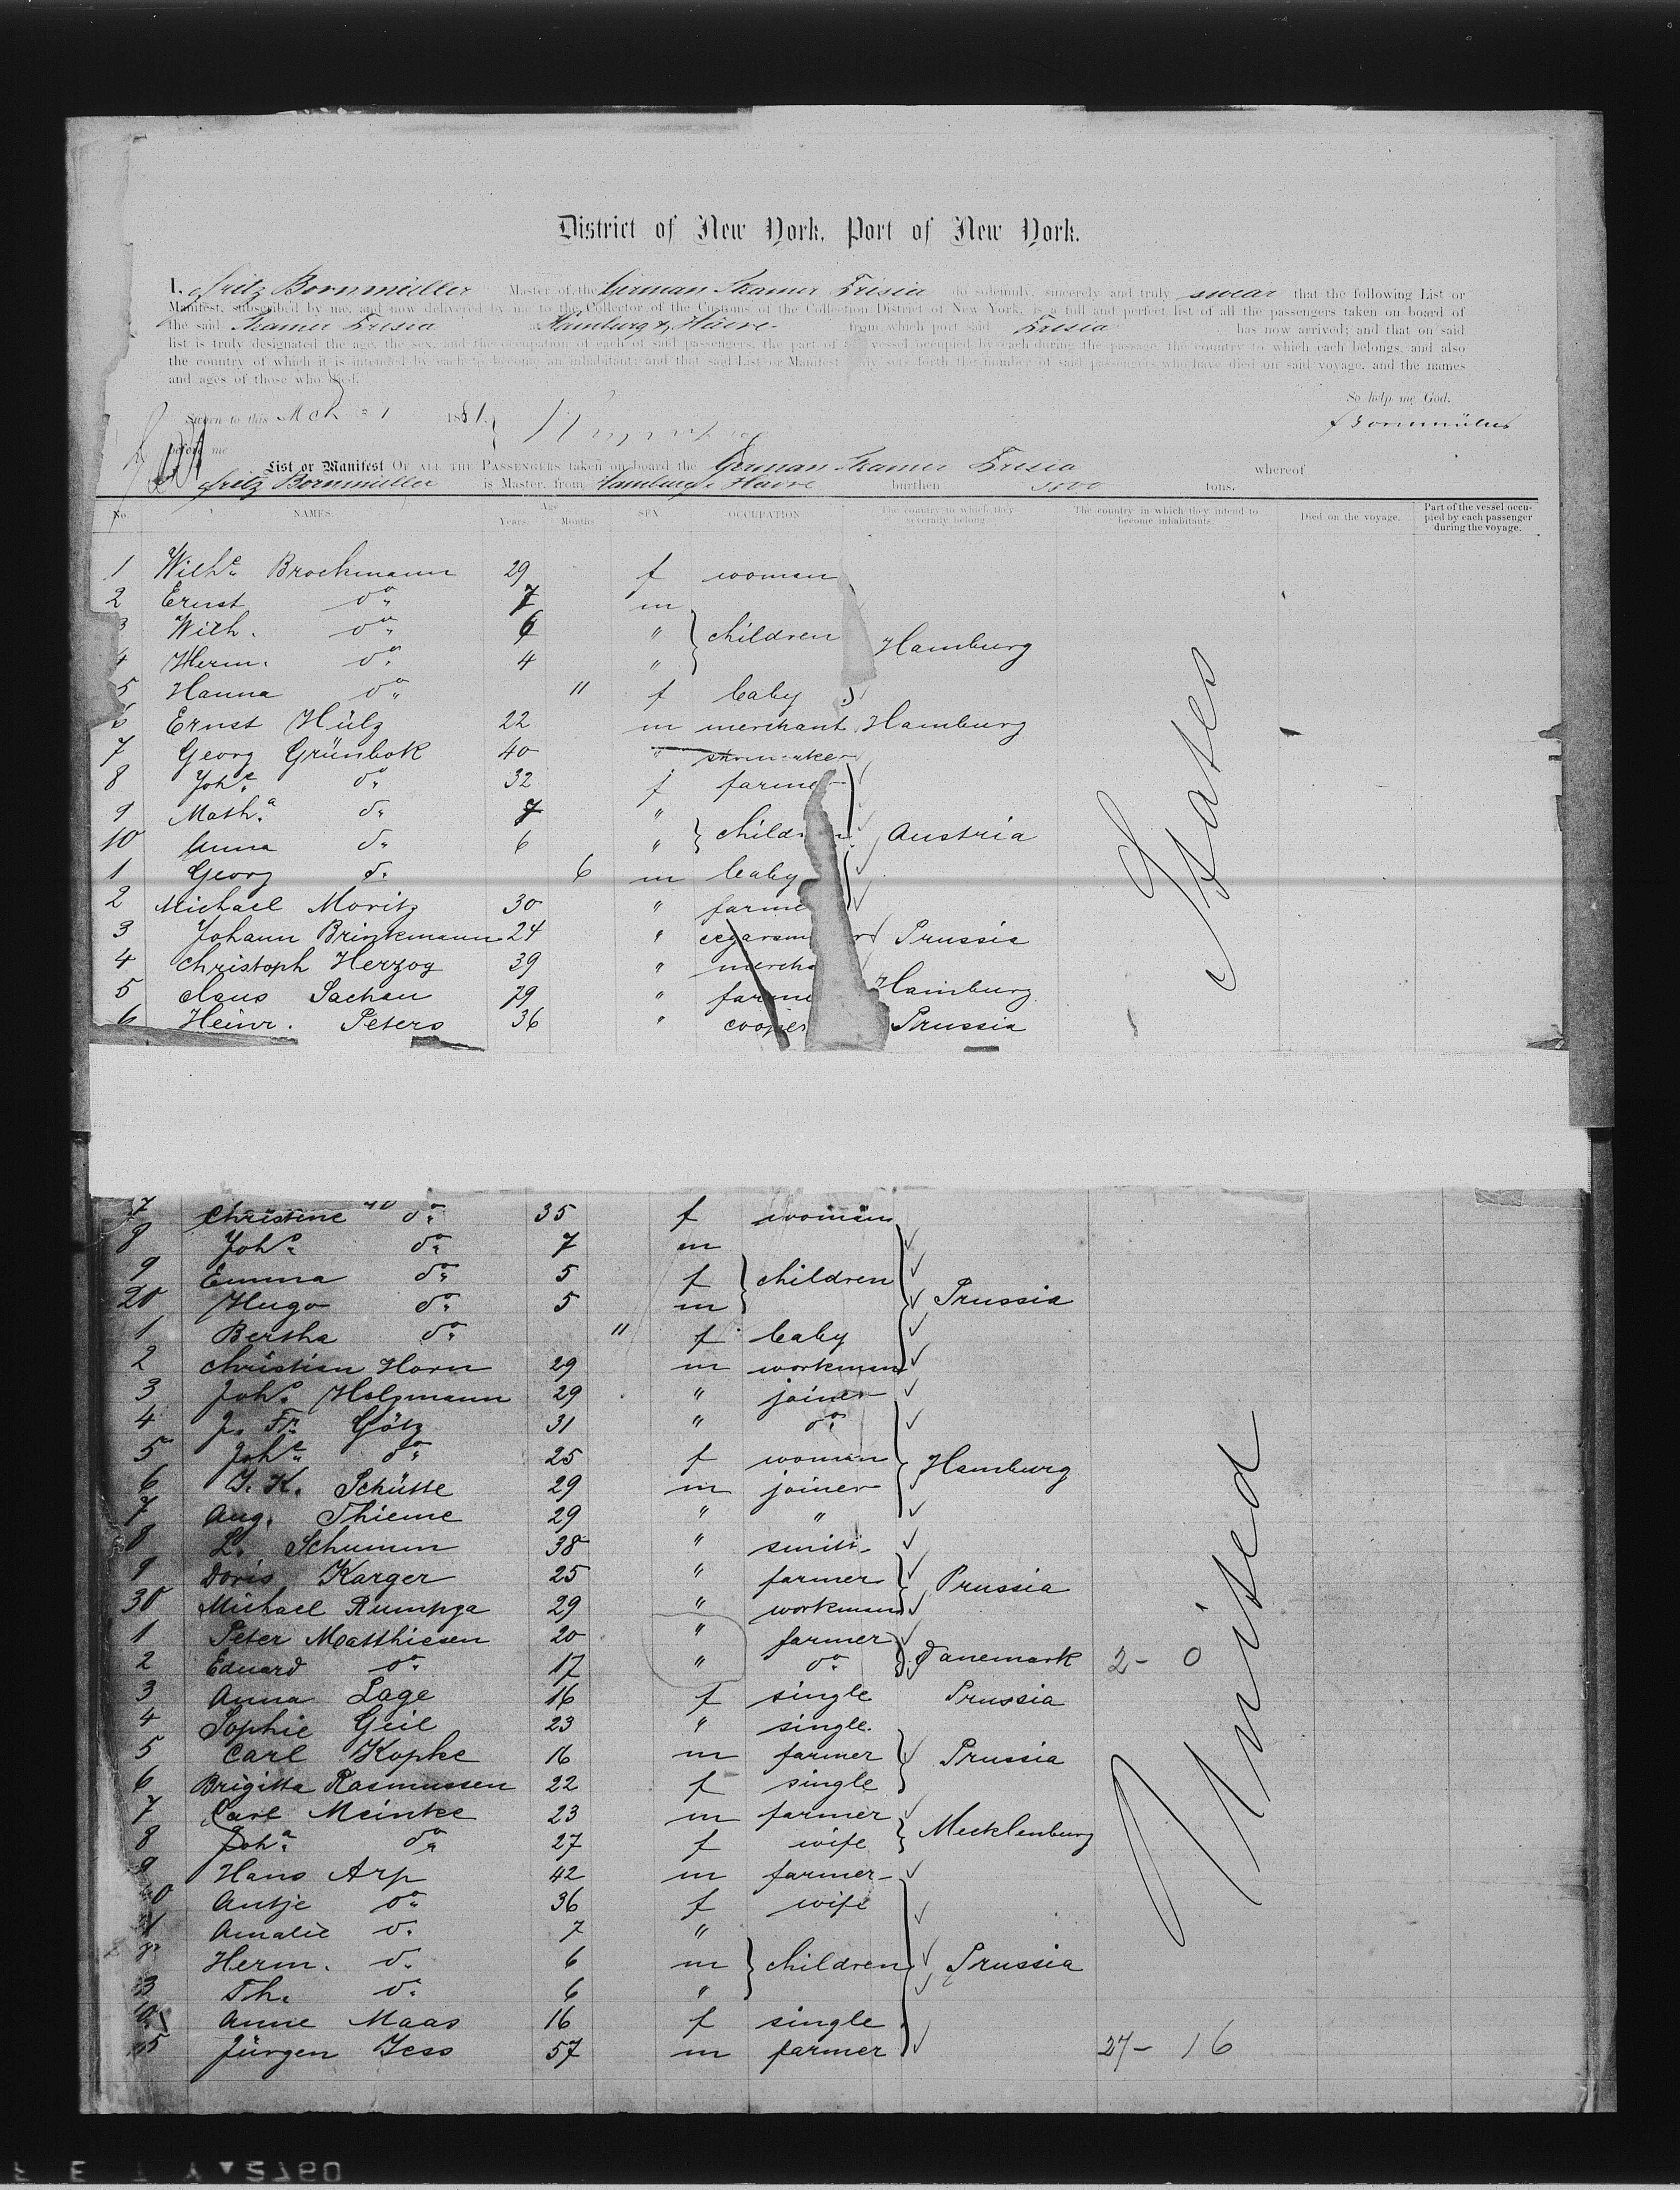 District of New York, Port of New York.
I, Fritz Bornmüller Master of the German Steamer Frisia do solemnly, sincerely and truly swear that the following List or
Manifest, subscribed by me, and now delivered by me to the Collector of the Customs of the Collection District of New York, is a full and perfect list of all the passengers taken on board of
the said Steamer Frisia Hamburg & Havre from which port said Frisia has now arrived; and that on said
list is truly designated the age, the sex, and the occupation of each of said passengers, the part of vessel occupied by each during the passage, the country to which each belongs, and also
the country of which it is intended by each to become an inhabitant; and that said List or Manifest sets forth the number of said passengers who have died on said voyage, and the names
and ages of those who died.
So help me God.
Sworn to this Mch 1 1881.
FBornmüller
before me
List or Manifest OF ALL THE PASSENGERS taken on board the German Steamer Frisia whereof
Fritz Bornmüller is Master, from Hamburg & Havre burthen tons.
No. NAMES. Age Years. Months SEX OCCUPATION The country to which they severally belong. The country in which they intend to become inhabitants. Died on the voyage. Part of the vessel occupied by each passenger during the voyage.
1 Wilhe. Brockmann 29 f woman
2 Ernst do. 7 m
3 Wilh. do. 6 " children Hamburg
4 Herm. do. 4 "
5 Hanna do. 11 f baby
6 Ernst Hülz 22 m merchant Hamburg
7 Georg Grünbok 40 "
8 Johe. do. 32 f farmer
9 Matha. do. 7 "
10 Anna do. 6 " children Austria
1 Georg do. 6 m baby
2 Michael Moritz 30 " farme
3 Johann Brinkmann 24 " cegarsm Prussia
4 Christoph Herzog 39 " mercha
5 Claus Sachau 29 " farme Hamburg
6 Heinr. Peters 36 " cooper Prussia
7 Christine do. 35 f woman
8 Johs. do. 7 m
9 Emma do. 5 f children
20 Hugo do. 5 m Prussia
1 Bertha do. 11 f baby
2 Christian Horn 29 m workman
3 Johs. Holzmann 29 " joiner
4 J. Fr. Götz 31 " do.
5 Johe. do. 25 f woman Hamburg
6 J. K. Schütte 29 m joiner
7 Aug. Thieme 29 " "
8 L. Schumm 38 " smith
9 Doris Karger 25 " farmer Prussia
30 Michael Rumpga 29 " workman
1 Peter Matthiesen 20 " farmer
2 Eduard do. 17 " do. Danemark 2- 0
3 Anna Lage 16 f single Prussia
4 Sophie Geil 23 " single.
5 Carl Kopke 16 m farmer Prussia
6 Brigitta Rasmussen 22 f single
7 Carl Meinke 23 m farmer Mecklenburg
8 Joha. do. 27 f wife
9 Hans Arp 42 m farmer
40 Antje do. 36 f wife
1 Amalie do. 7 "
2 Herm. do. 6 m children Prussia
3 Th. do. 6 "
4 Anne Maas 16 f single
5 Jürgen Jess 57 m farmer 27- 16
United States